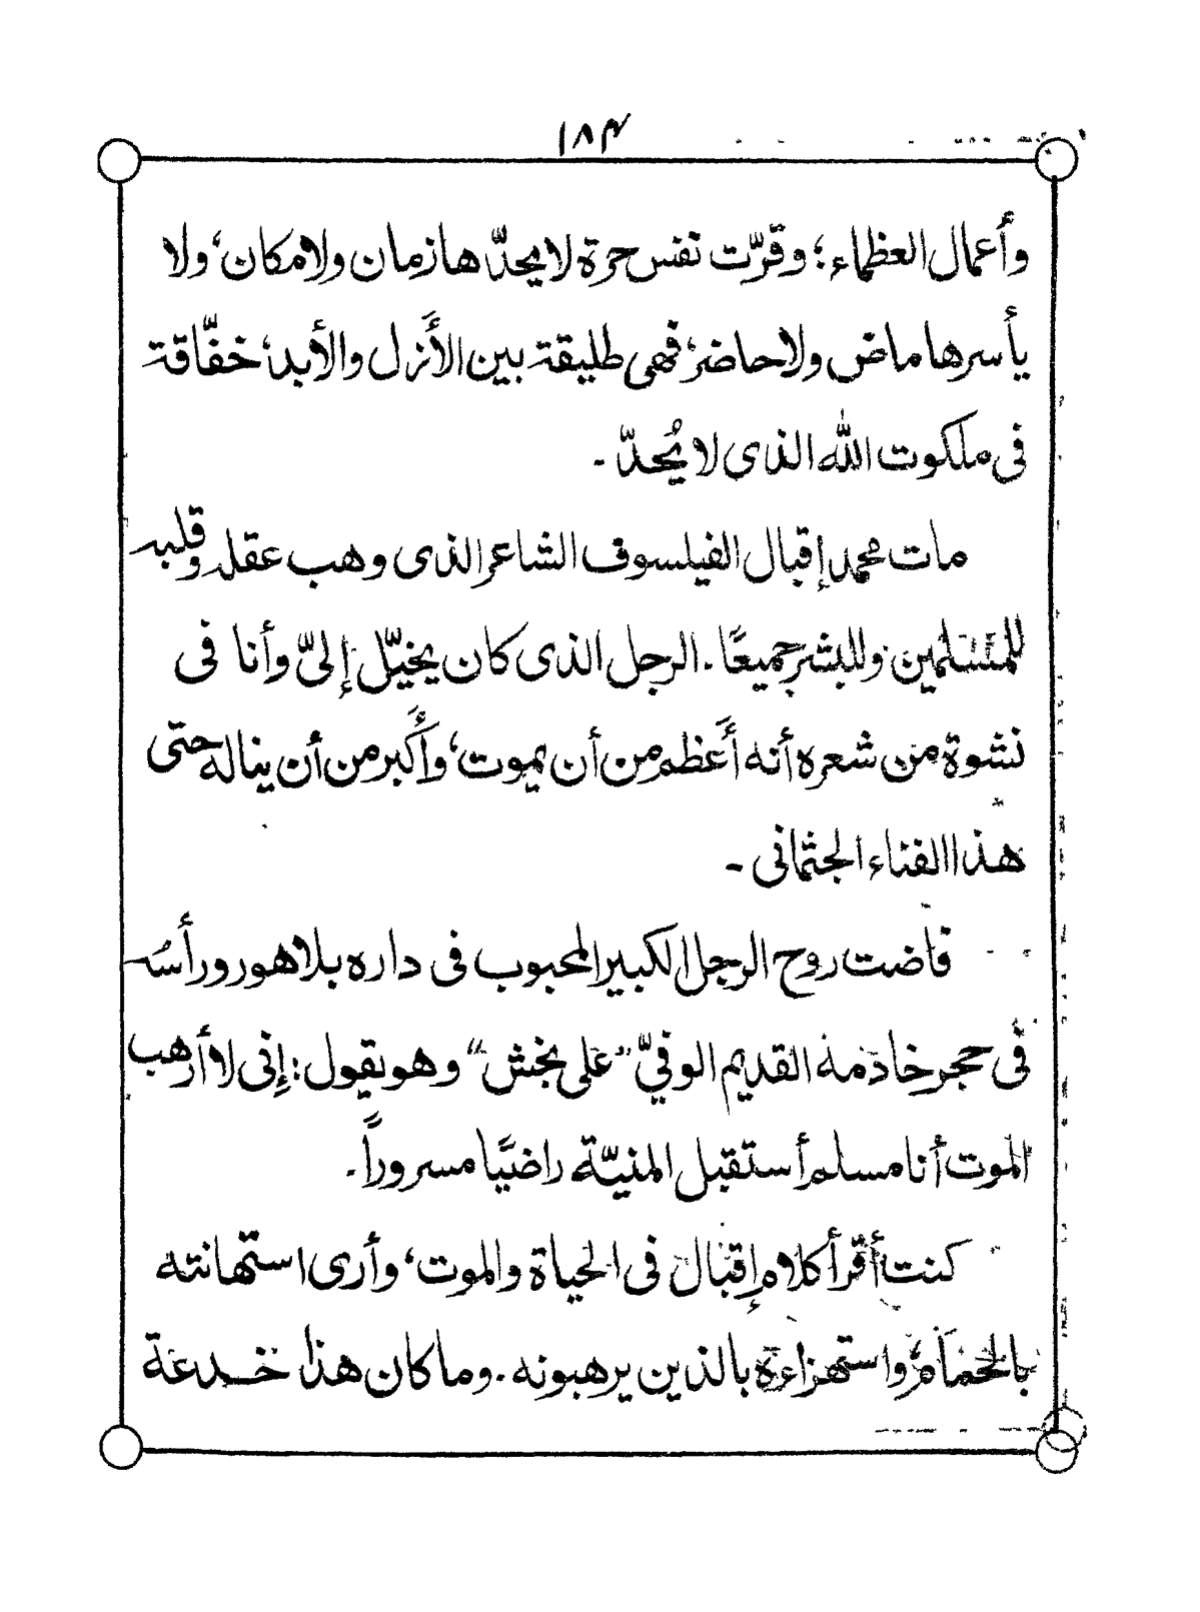 ١٨٣
وأعمال العظماء؛ وقرّت نفس حرة لا يحدّها زمان ولا مكان، ولا
يأسرها ماض ولا حاضر، فهى طليقة بين الأَزل والأبد، خفّاقة
فى ملكوت الله الذى لا يُحدّ -
مات محمد إقبال الفيلسوف الشاعر الذى وهب عقله وقلبه
للمسلمين وللبشر جميعًا. الرجل الذى كان يخيّل إلىّ وأنا فى
نشوة من شعره أنه أَعظم من أن يموت، وأَكبر من أن يناله حتى
هذا الفناء الجثمانى -
فاضت روح الرجل الكبير المحبوب فى داره بلاهور ورأسُه
فى حجر خادمه القديم الوفيّ "على بخش" وهو يقول: إنى لا أرهب
الموت أنا مسلم أستقبل المنيّة راضيًا مسروراً.
كنت أقرأ كلام إقبال فى الحياة والموت، وأرى استهانته
بالحمام، واستهزاءه بالذين يرهبونه. وما كان هذا خدعة